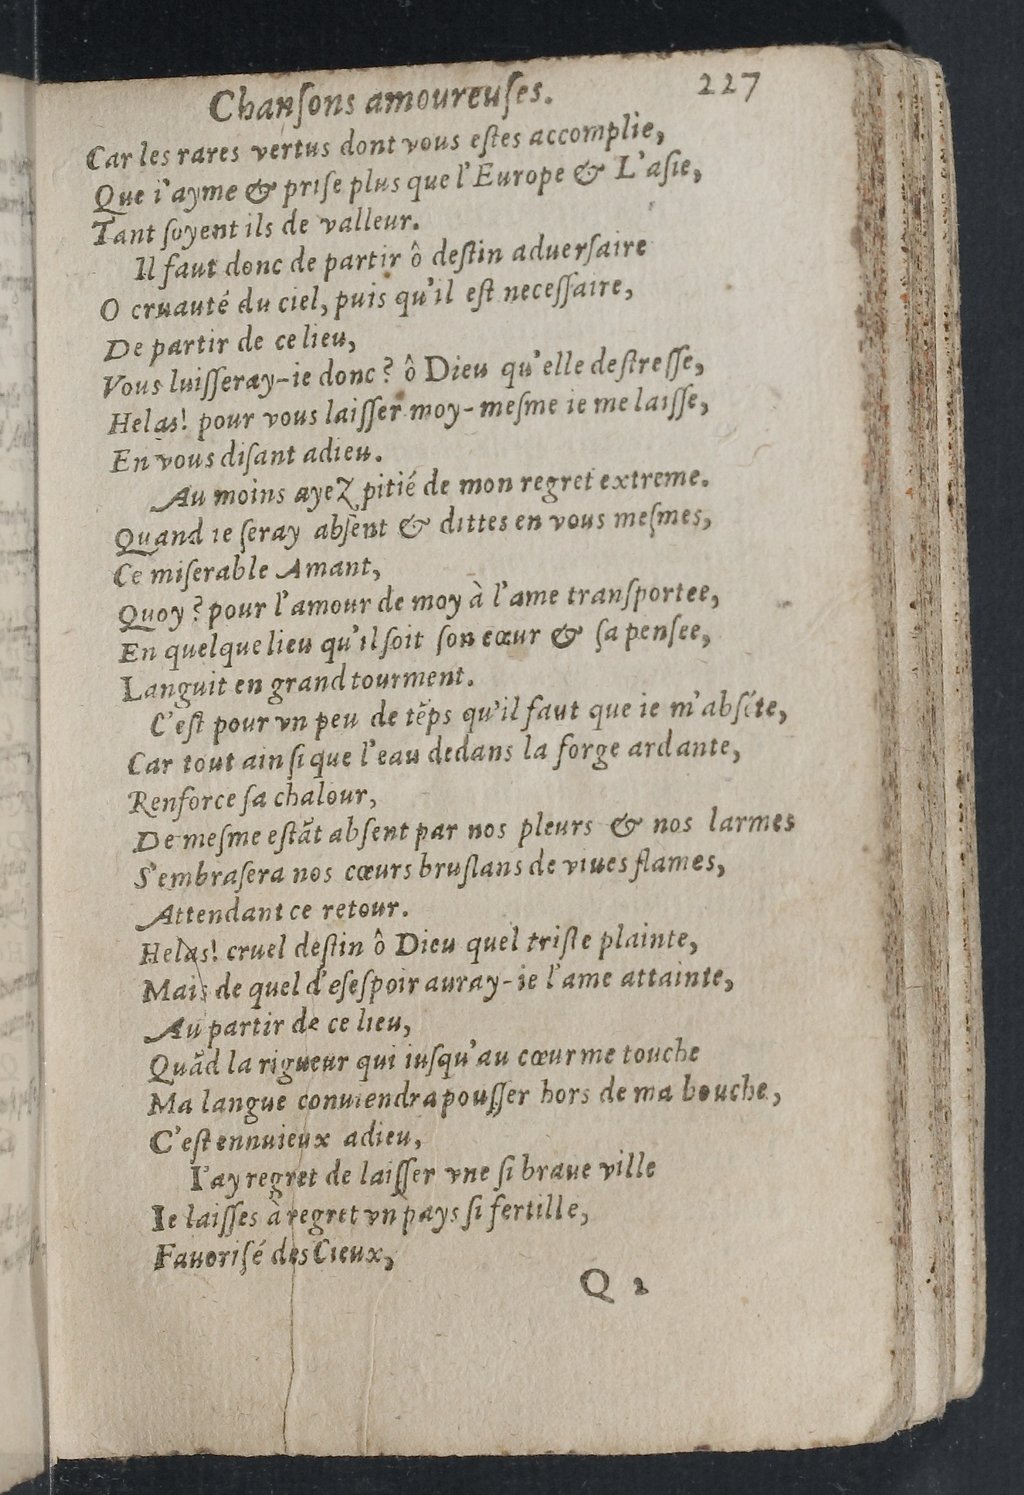 Chanſons amoureuſes. 227
Car les rares vertus dont vous eſtes accomplie,
Que i'ayme & priſe plus que l'Europe & L'aſie,
Tant ſoyent ils de valleur.
Il faut donc de partir ô deſtin aduerſaire
O cruauté du ciel, puis qu'il eſt neceſſaire,
De partir de ce lieu,
Vous luiſſeray-ie donc? ô Dieu qu'elle deſtreſſe,
Helas! pour vous laiſſer moy-meſme ie me laiſſe,
En vous diſant adieu.
Au moins ayez pitié de mon regret extreme.
Quand ie ſeray abſent & dittes en vous meſmes,
Ce miſerable Amant,
Quoy? pour l'amour de moy à l'ame tranſportee,
En quelque lieu qu'il ſoit ſon eœur & ſa penſee,
Languit en grand tourment.
C'eſt pour vn peu de tẽps qu'il faut que ie m'abſẽte,
Car tout ainſi que l'eau dedans la forge ardante,
Renforce ſa chalour,
De meſme eſtãt abſent par nos pleurs & nos larmes
S'embraſera nos cœurs bruſlans de viues flames,
Attendant ce retour.
Helas! cruel deſtin ô Dieu quel triſte plainte,
Mais de quel d'eſeſpoir auray-ie l'ame attainte,
Au partir de ce lieu,
Quãd la rigueur qui iuſqu'au cœur me touche
Ma langue conuiendra pouſſer hors de ma bouche,
C'eſt ennuieux adieu,
I'ay regret de laiſſer vne ſi braue ville
Ie laiſſes à regret vn pays ſi fertille,
Fauoriſé des Cieux,
Q 2